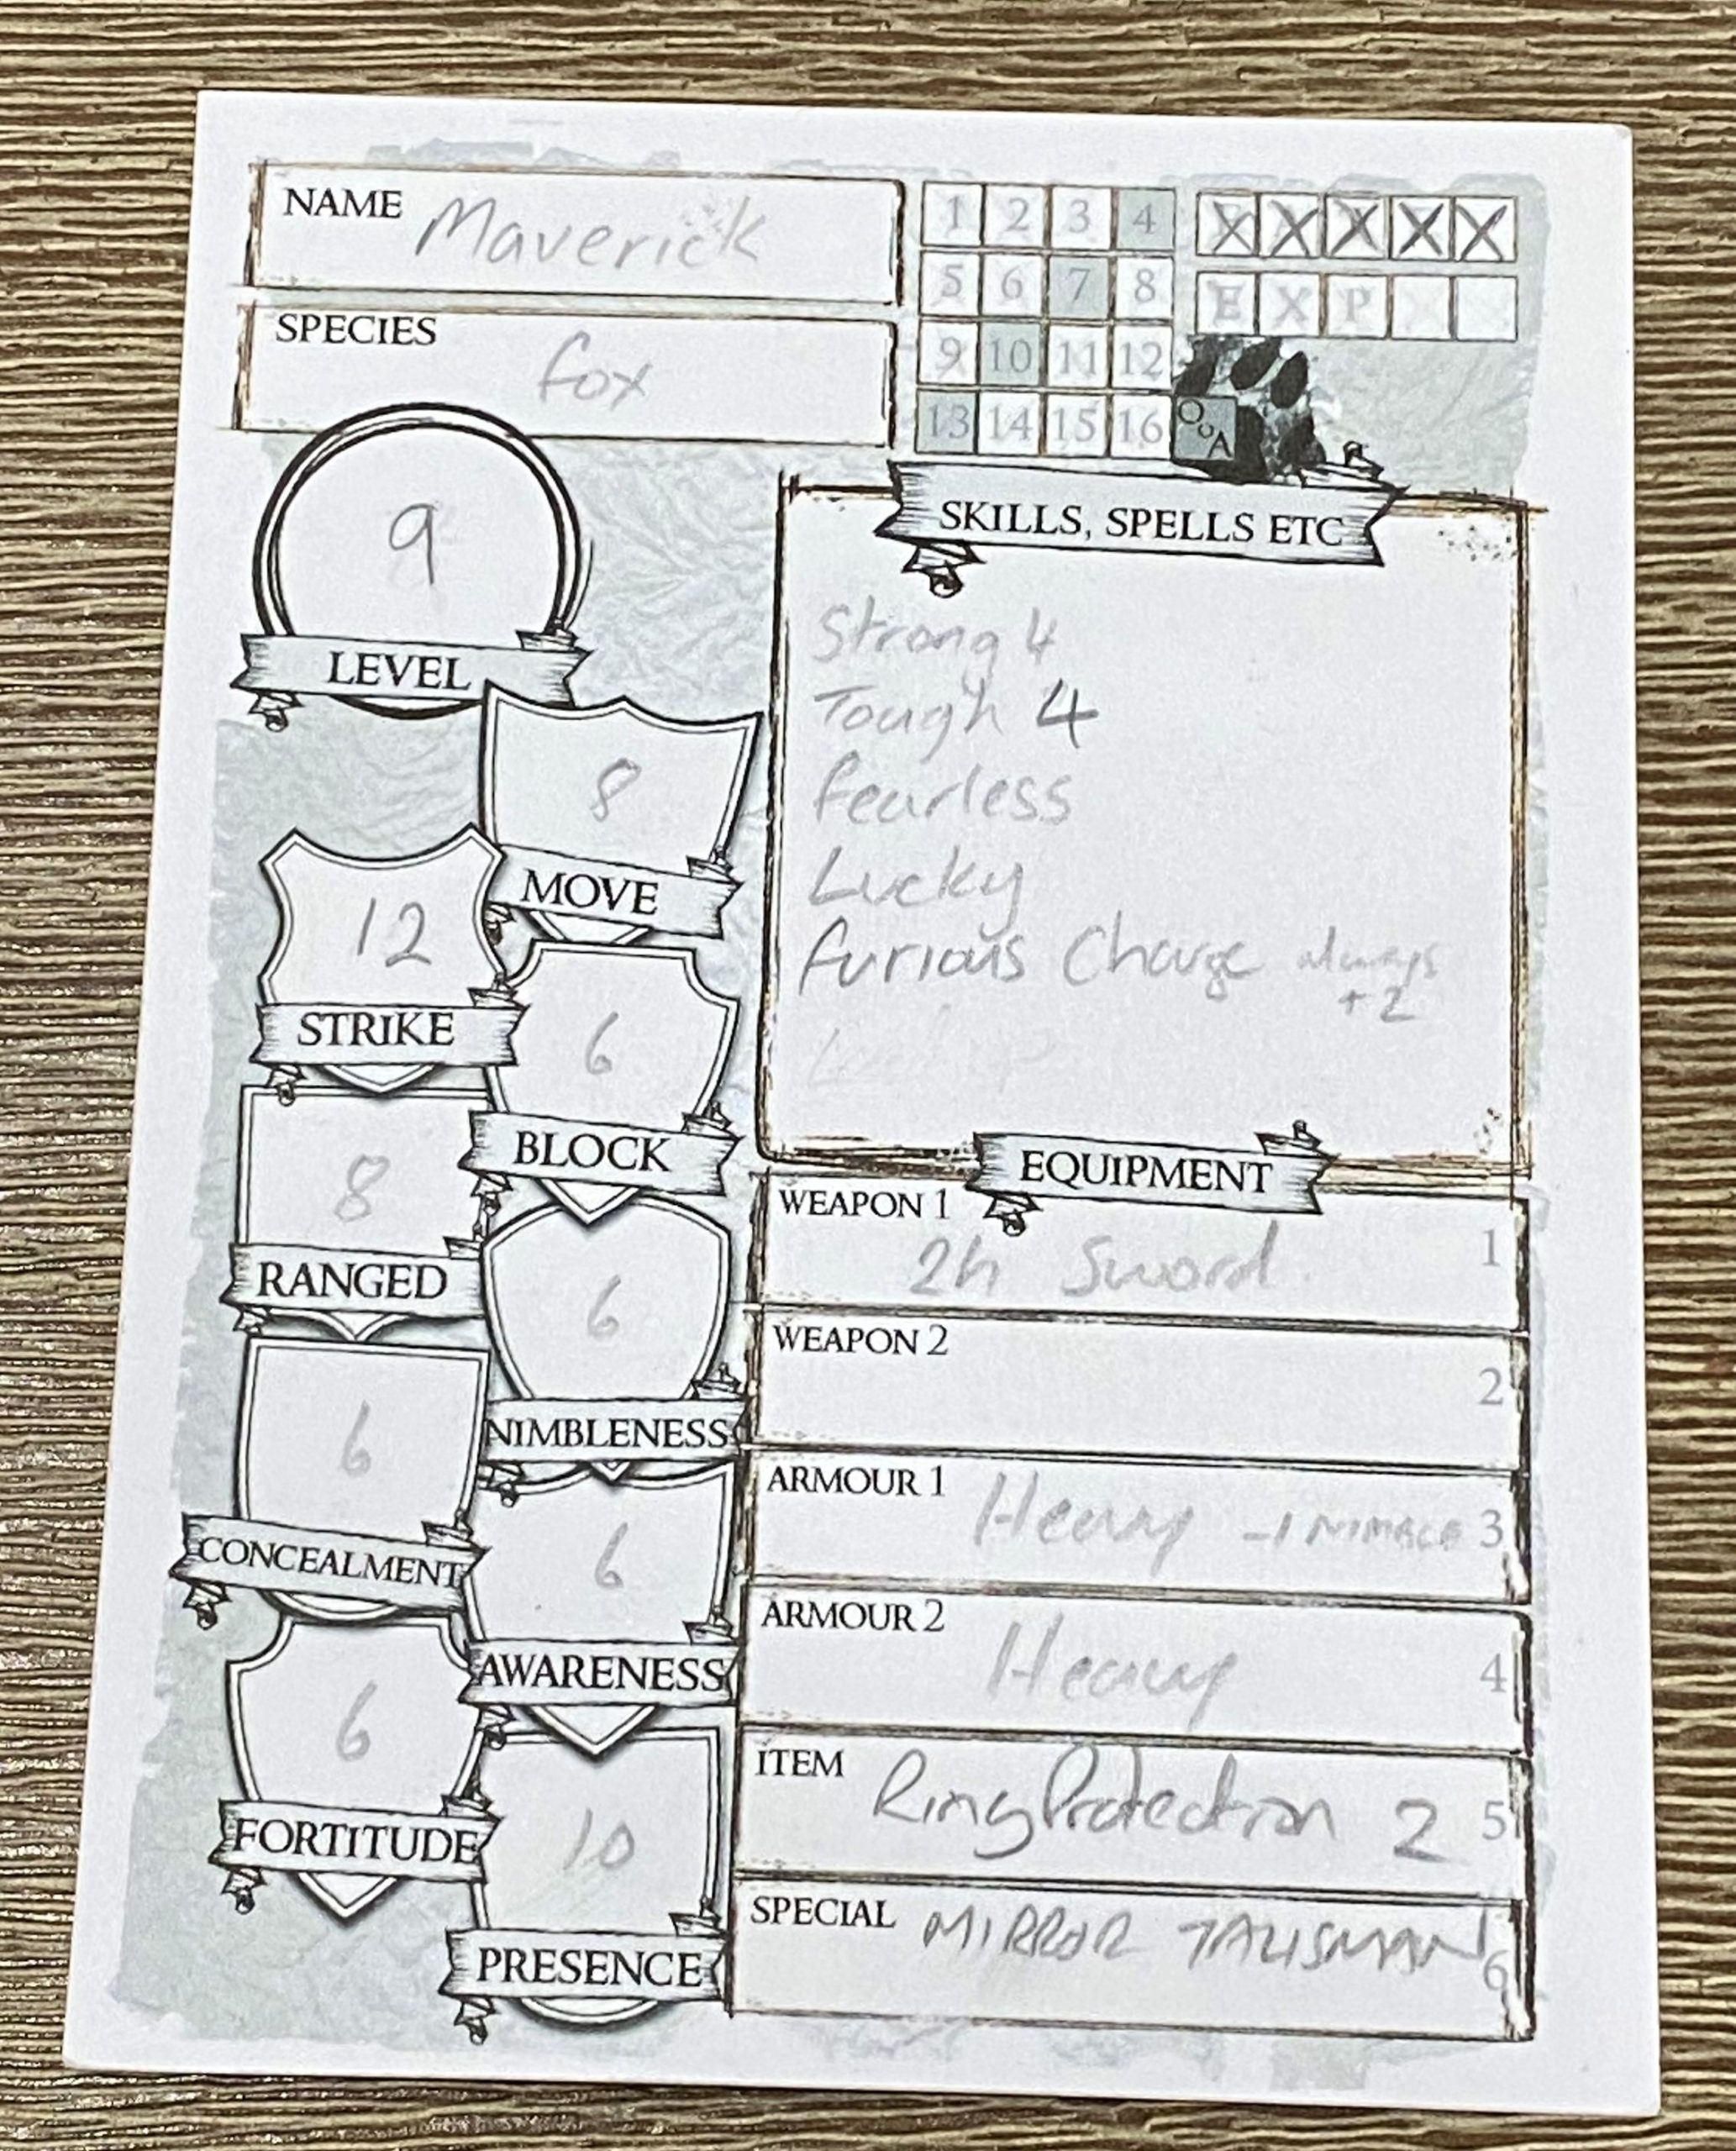 NAME Maverick
SPECIES fox
1 2 3 4
5 6 7 8
9 10 11 12
13 14 15 16 OoA
X X X X X
E X P
9
LEVEL
8
MOVE
12
STRIKE
6
BLOCK
8
RANGED
6
NIMBLENESS
6
CONCEALMENT
6
AWARENESS
6
FORTITUDE
10
PRESENCE
SKILLS, SPELLS ETC
Strong 4
Tough 4
fearless
Lucky
furious Charge always
+2
EQUIPMENT
WEAPON 1
2h Sword 1
WEAPON 2
2
ARMOUR 1 Heavy -1 3
ARMOUR 2
Heavy 4
ITEM Ring Protection 2 5
SPECIAL MIRROR TALISMAN 6